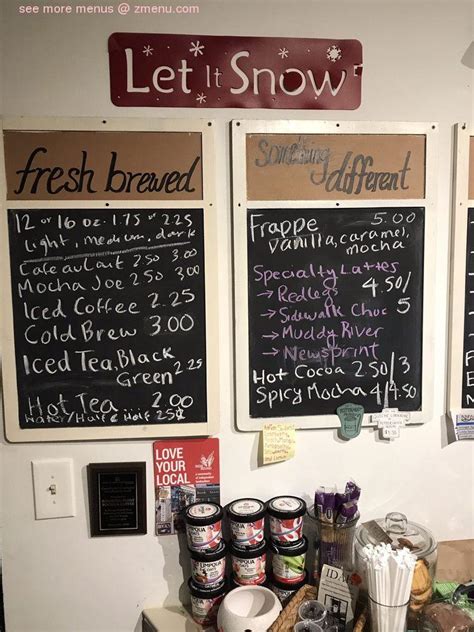 see more menus @ zmenu.com
Let It Snow
fresh brewed
12 or 16 oz. 1.75 or 2.25
light, medium, dark
Cafe au Lait 2.50 3.00
Mocha Joe 2.50 3.00
Iced Coffee 2.25
Cold Brew 3.00
Iced Tea, Black
Green 2.25
Hot Tea 2.00
Water/Half & Half 25¢
Something
different
Frappe 5.00
vanilla, caramel,
mocha
Specialty Lattes
→ Redleg 4.50/
→ Sidewalk Choc 5
→ Muddy River
→ Newsprint
Hot Cocoa 2.50/3
Spicy Mocha 4/4.50
LOVE
YOUR
LOCAL
UMPQUA
OATS
IDA